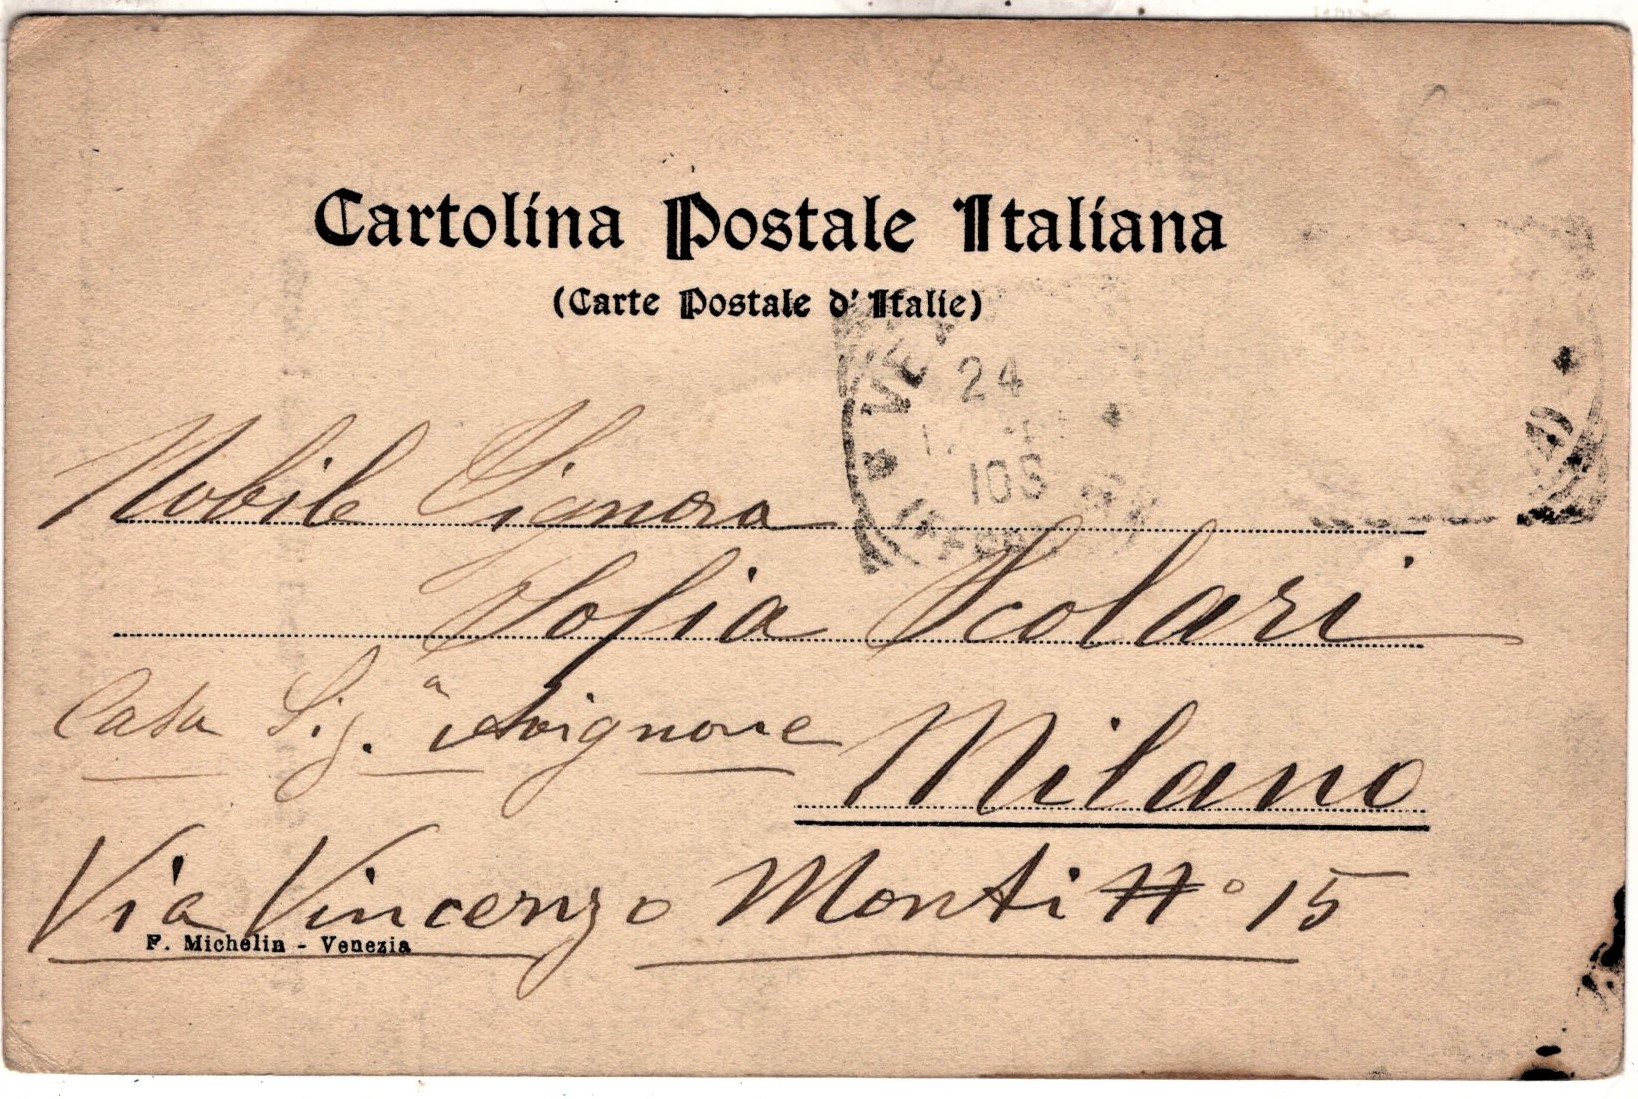 Cartolina Postale Italiana
(Carte Postale d'Italie)
VE
24
Nobile Signora
Sofia Scolari
Casa Sig.ª Avignone
Milano
Via Vincenzo Monti N° 15
F. Michelin - Venezia